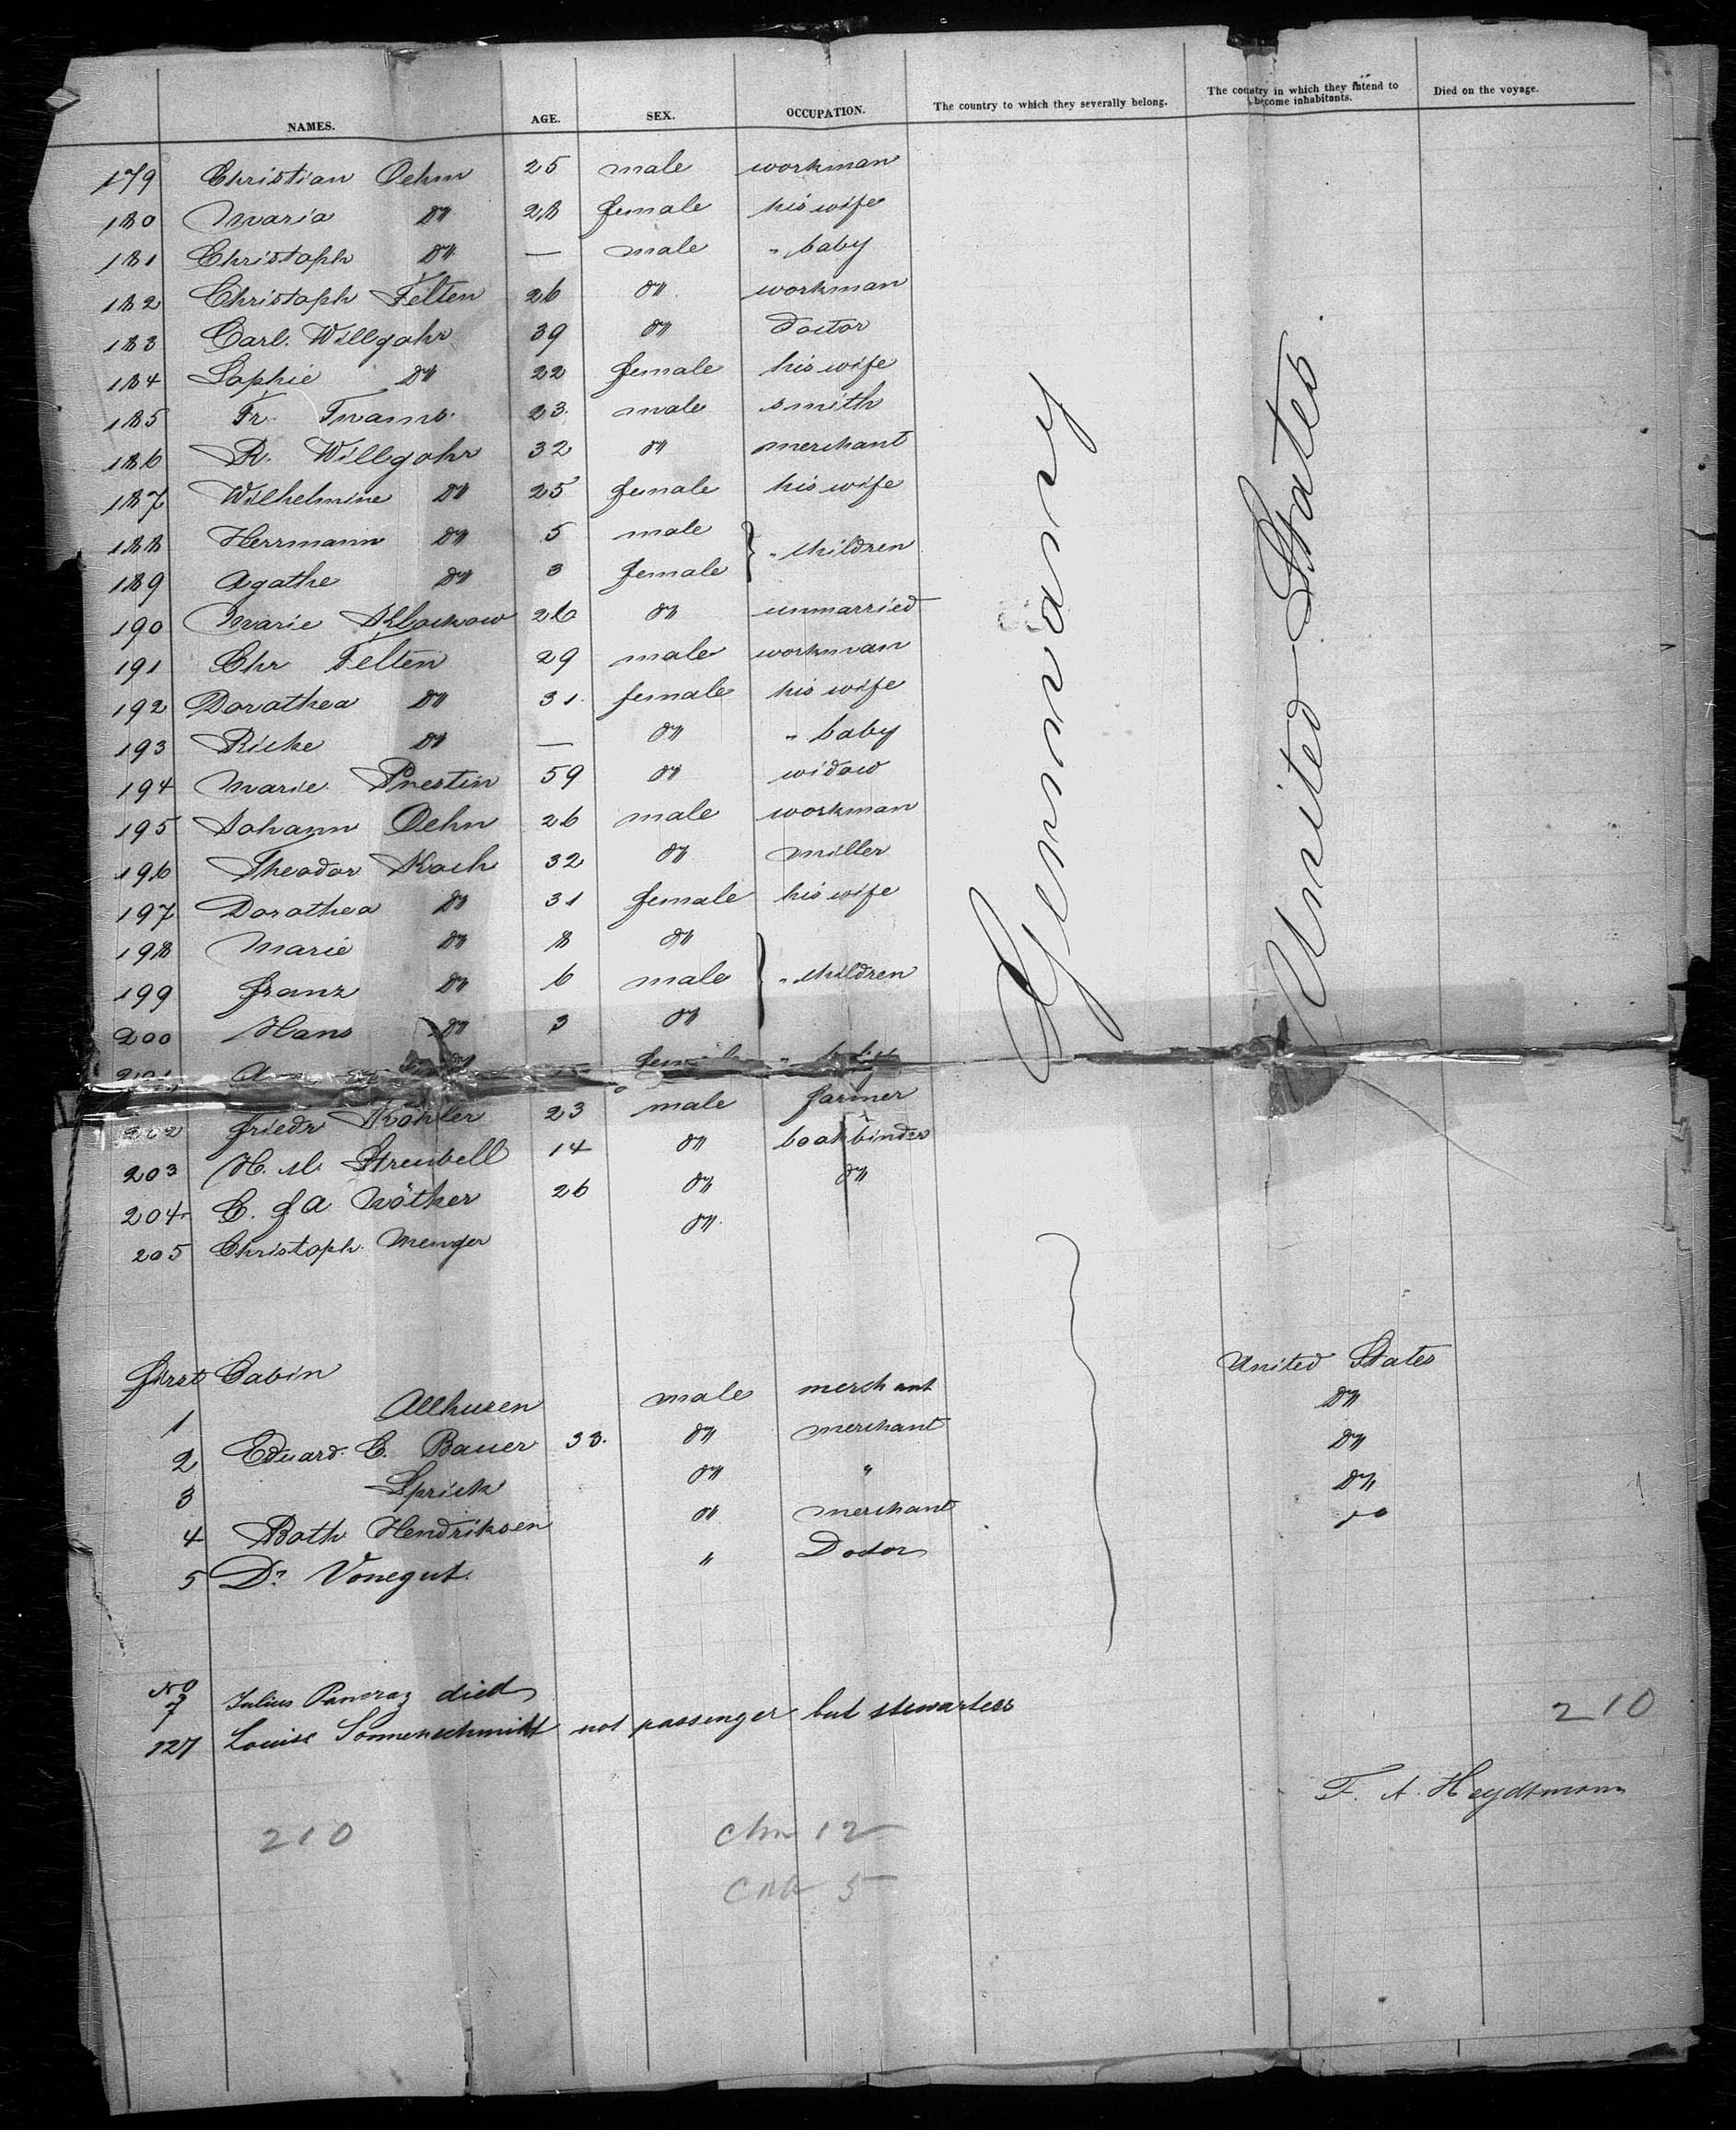 NAMES. AGE. SEX. OCCUPATION. The country to which they severally belong. The country in which they intend to become inhabitants. Died on the voyage.
179 Christian Oehm 25 male workman
180 Maria do 28 female his wife
181 Christoph do — male " baby
182 Christoph Felten 26 do workman
183 Carl. Willgohr 39 do doctor
184 Sophie do 22 female his wife
185 Fr. 23 male smith
186 R. Willgohr 32 do merchant
187 Wilhelmine do 25 female his wife
188 Herrmann do 5 male
" children
189 Agathe do 3 female
190 Marie Klockow 26 do unmarried
191 Chr Felten 29 male workman
192 Dorathea do 31. female his wife
193 Rieke do — do " baby
194 Marie Prestin 59 do widow
195 Johann Oehn 26 male workman
196 Theodor Koch 32 do miller
197 Dorathea do 31 female his wife
198 Marie do 8 do
199 Franz do 6 male " children
200 Hans do 3 do
201 do
202 Friedr Köhler 23 male farmer
203 H. M. Streubell 14 do bookbinder
204 C. F. A. Nöther 26 do do
205 Christoph. Menger do
Germany
United States.
First Cabin United States
1 Allhusen male merchant do
2 Eduard. C. Bauer 33. do merchant do
3 Sprick do " do
4 Both Hendriksen do merchant do
5 Dr. Vonegut. " Doctor
No
7 Julius Pancraz died
127 Louise Sonnenschmidt not passenger but stewartess
210
F. A. Heydtmann
210
12
5